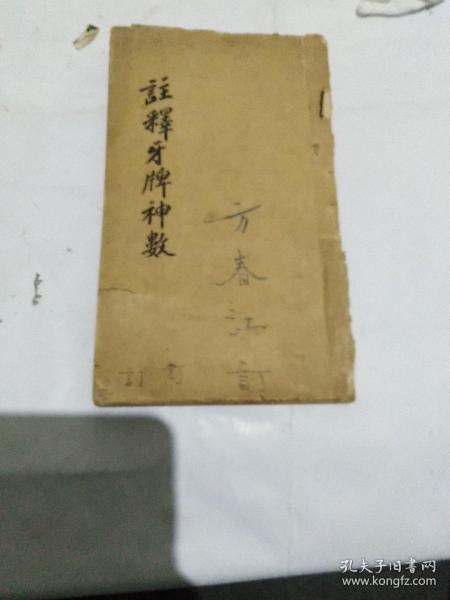 註釋牙牌神數
方春江訂
訂
孔夫子旧书网
www.kongfz.com